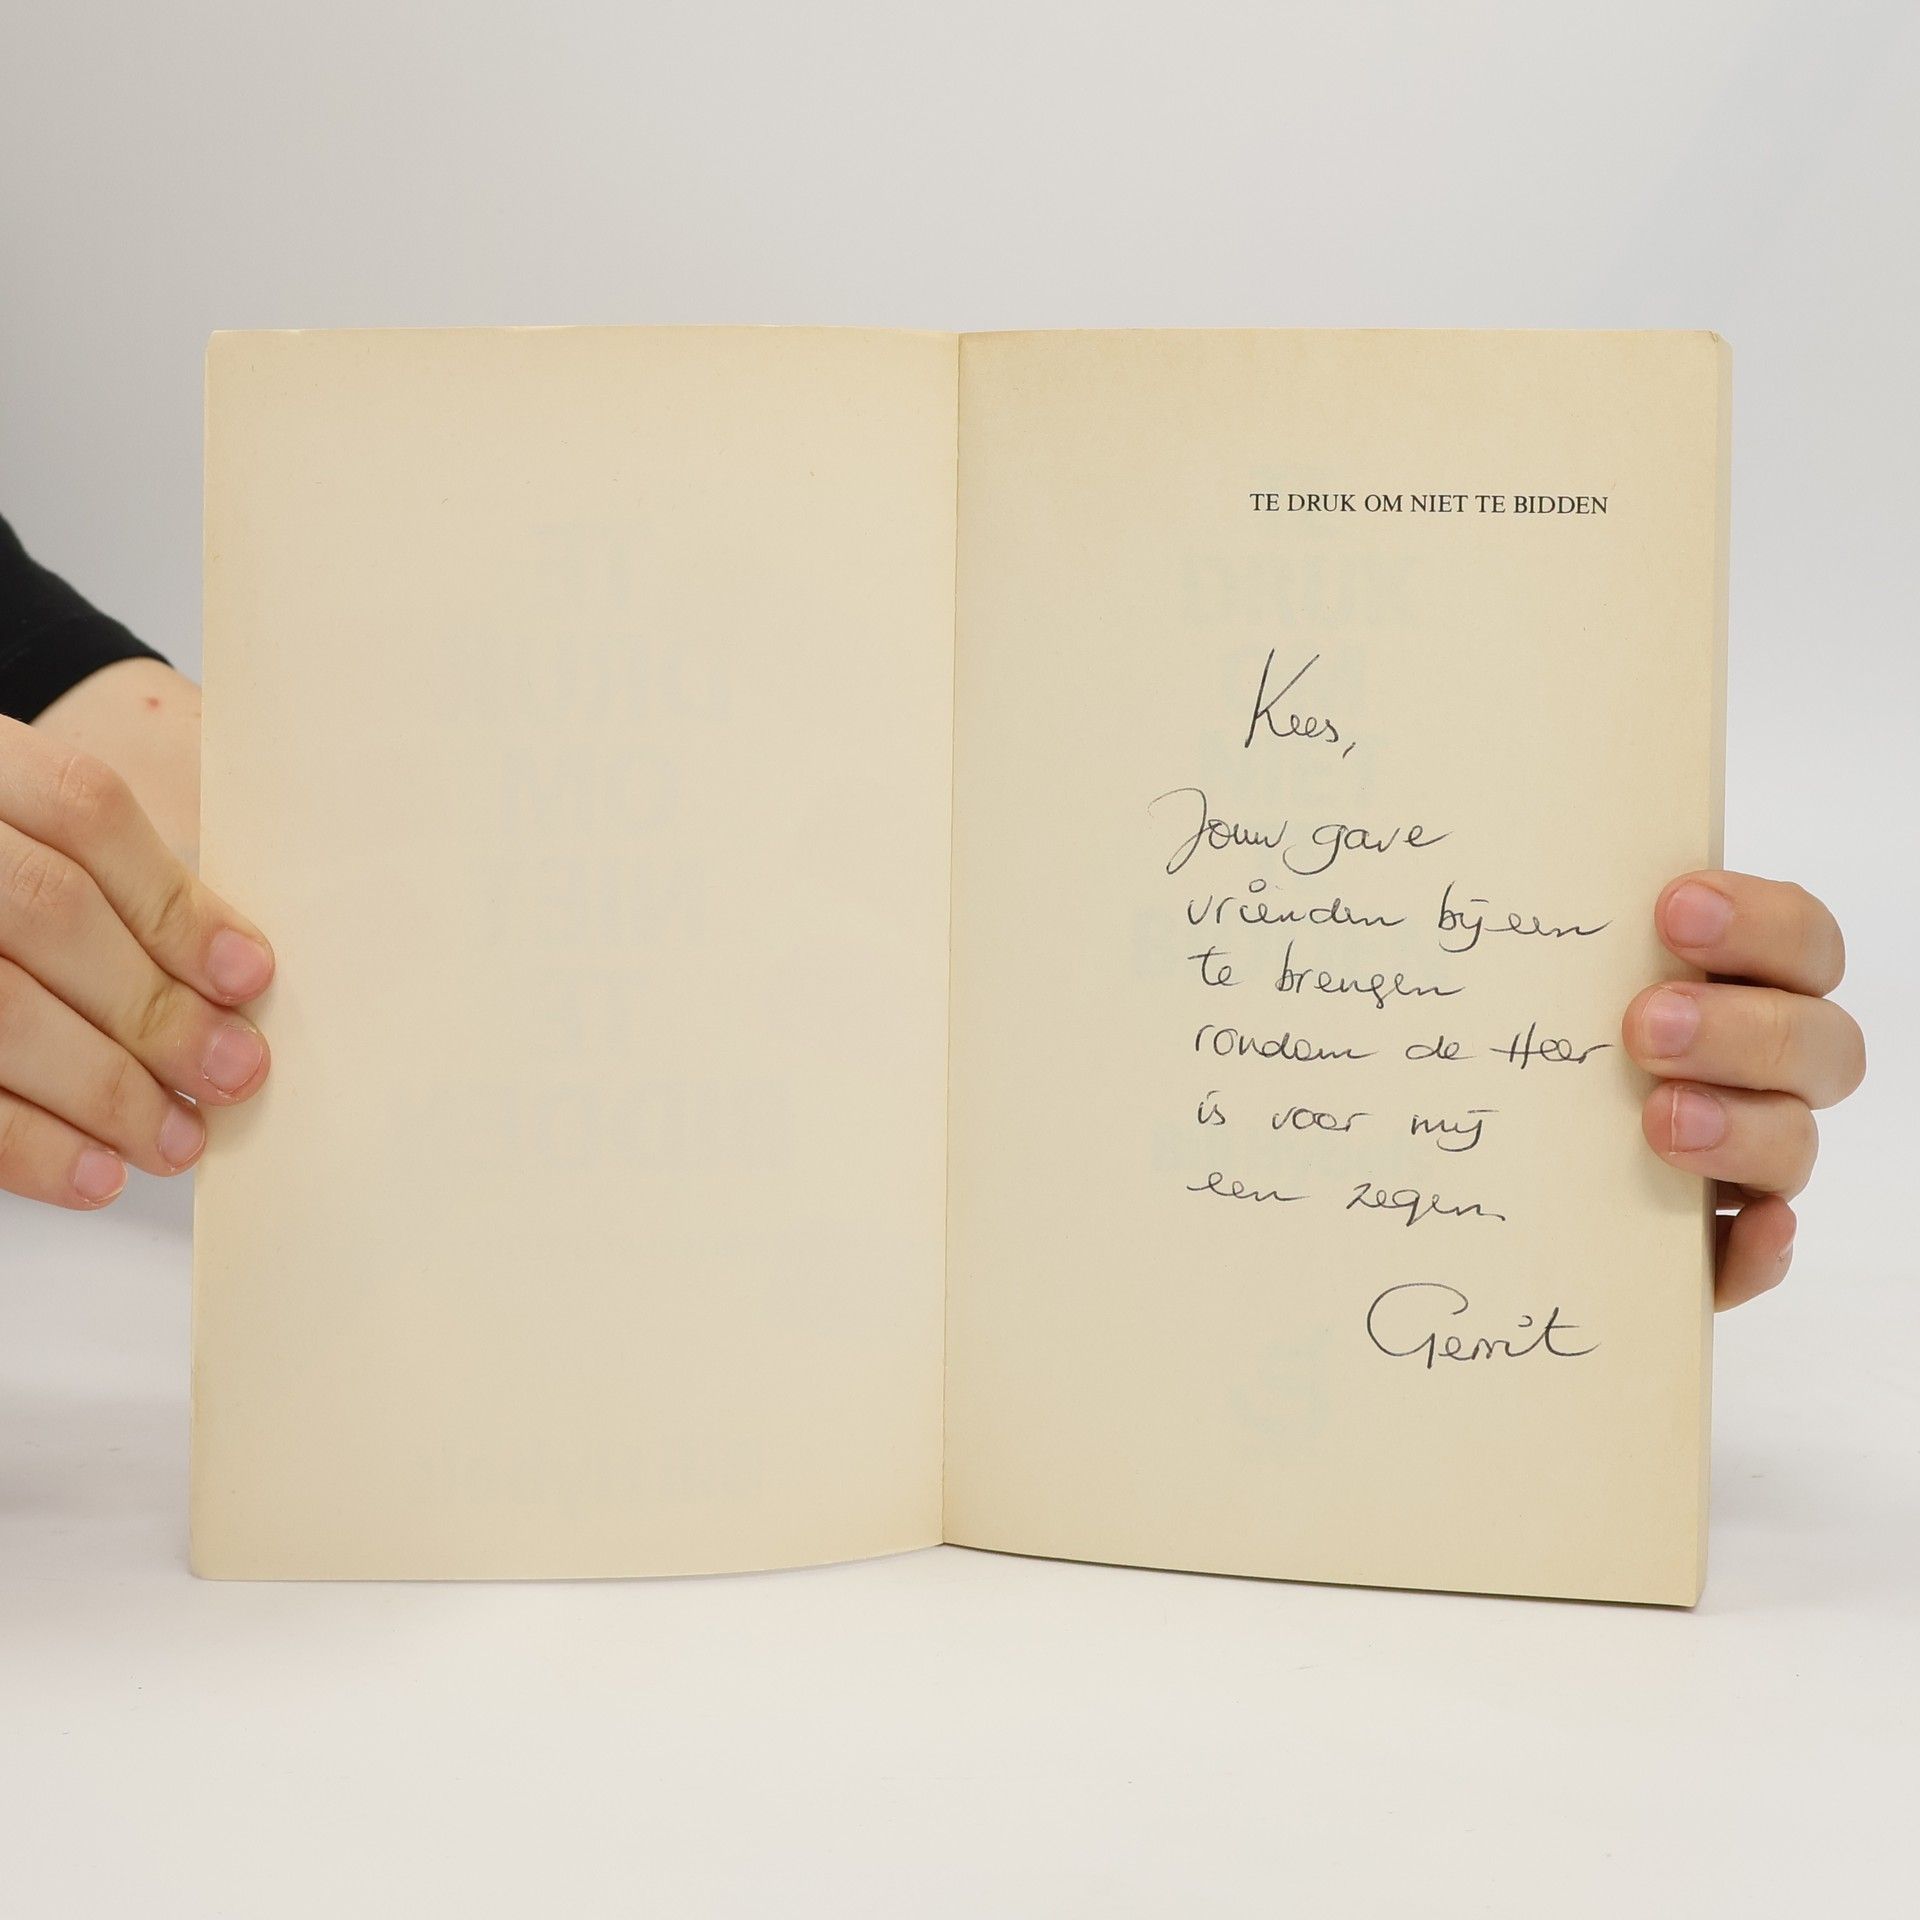 TE DRUK OM NIET TE BIDDEN
Kees,
Jouw gave
vrienden bijeen
te brengen
rondom de Heer
is voor mij
een zegen.
Gerrit